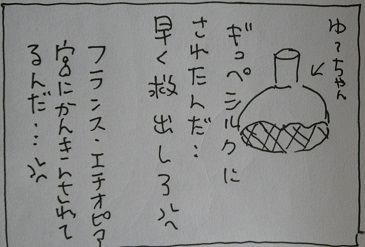 ゆうちゃん
ギュペシルクに
されたんだ…
早く救出しろ
フランス・エチオピア
宮にかんきんされて
るんだ…